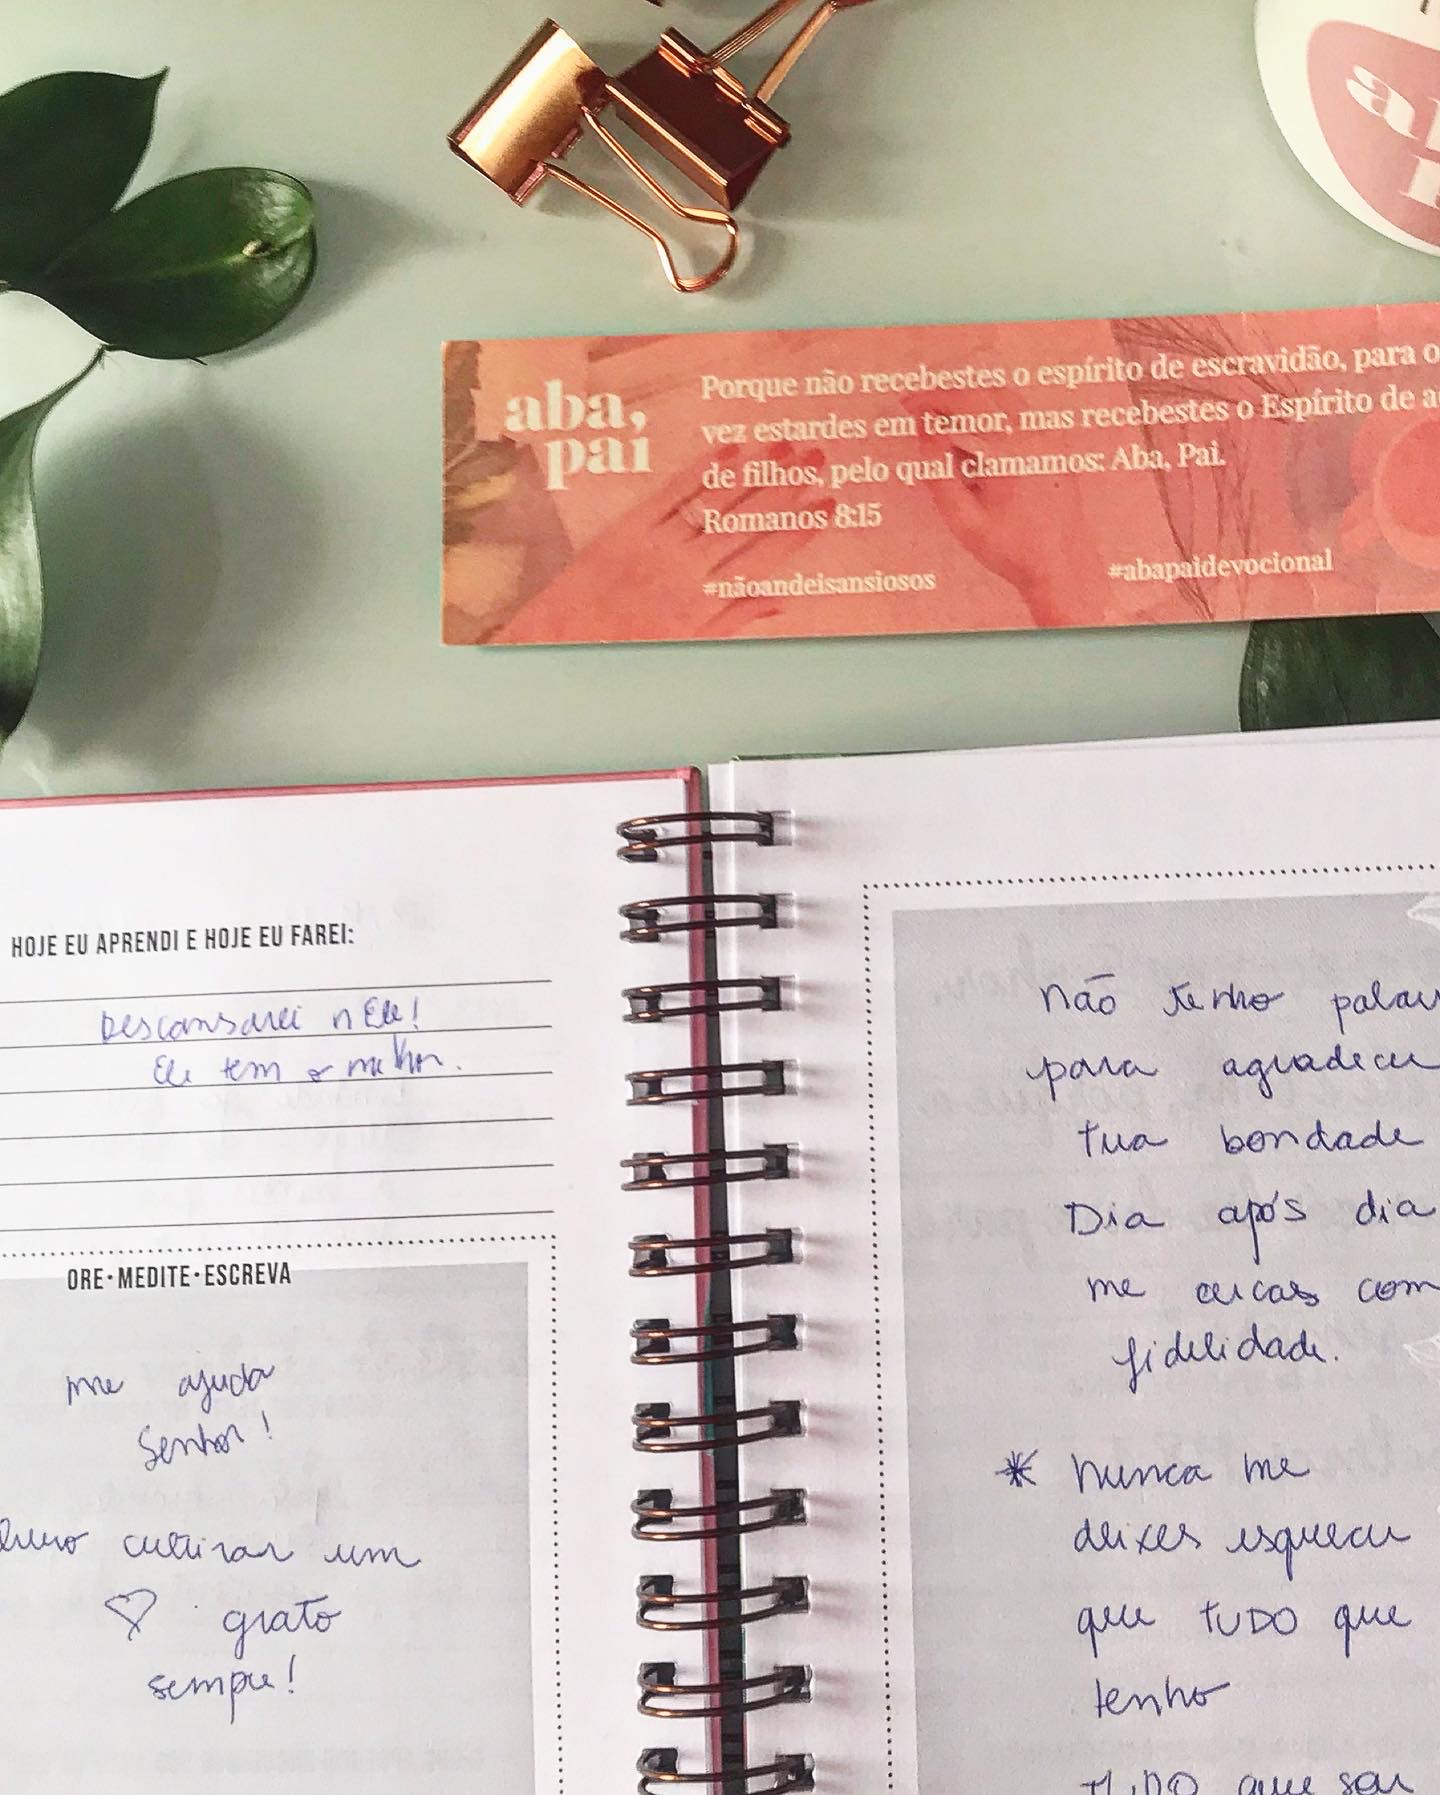 aba,
pai
Porque não recebestes o espírito de escravidão, para o
vez estardes em temor, mas recebestes o Espírito de
de filhos, pelo qual clamamos: Aba, Pai.
Romanos 8:15
#nãoandeisansiosos
#abapaidevocional
HOJE EU APRENDI E HOJE EU FAREI:
Descansarei nEle!
Ele tem o melhor.
ORE•MEDITE•ESCREVA
me ajuda
Senhor!
Quero cultivar um
♡ grato
sempre!
Não tenho
para agradecer
tua bondade
Dia após dia
me cercas com
fidelidade.
* Nunca me
deixes esquecer
que TUDO que
tenho
TUDO que sou